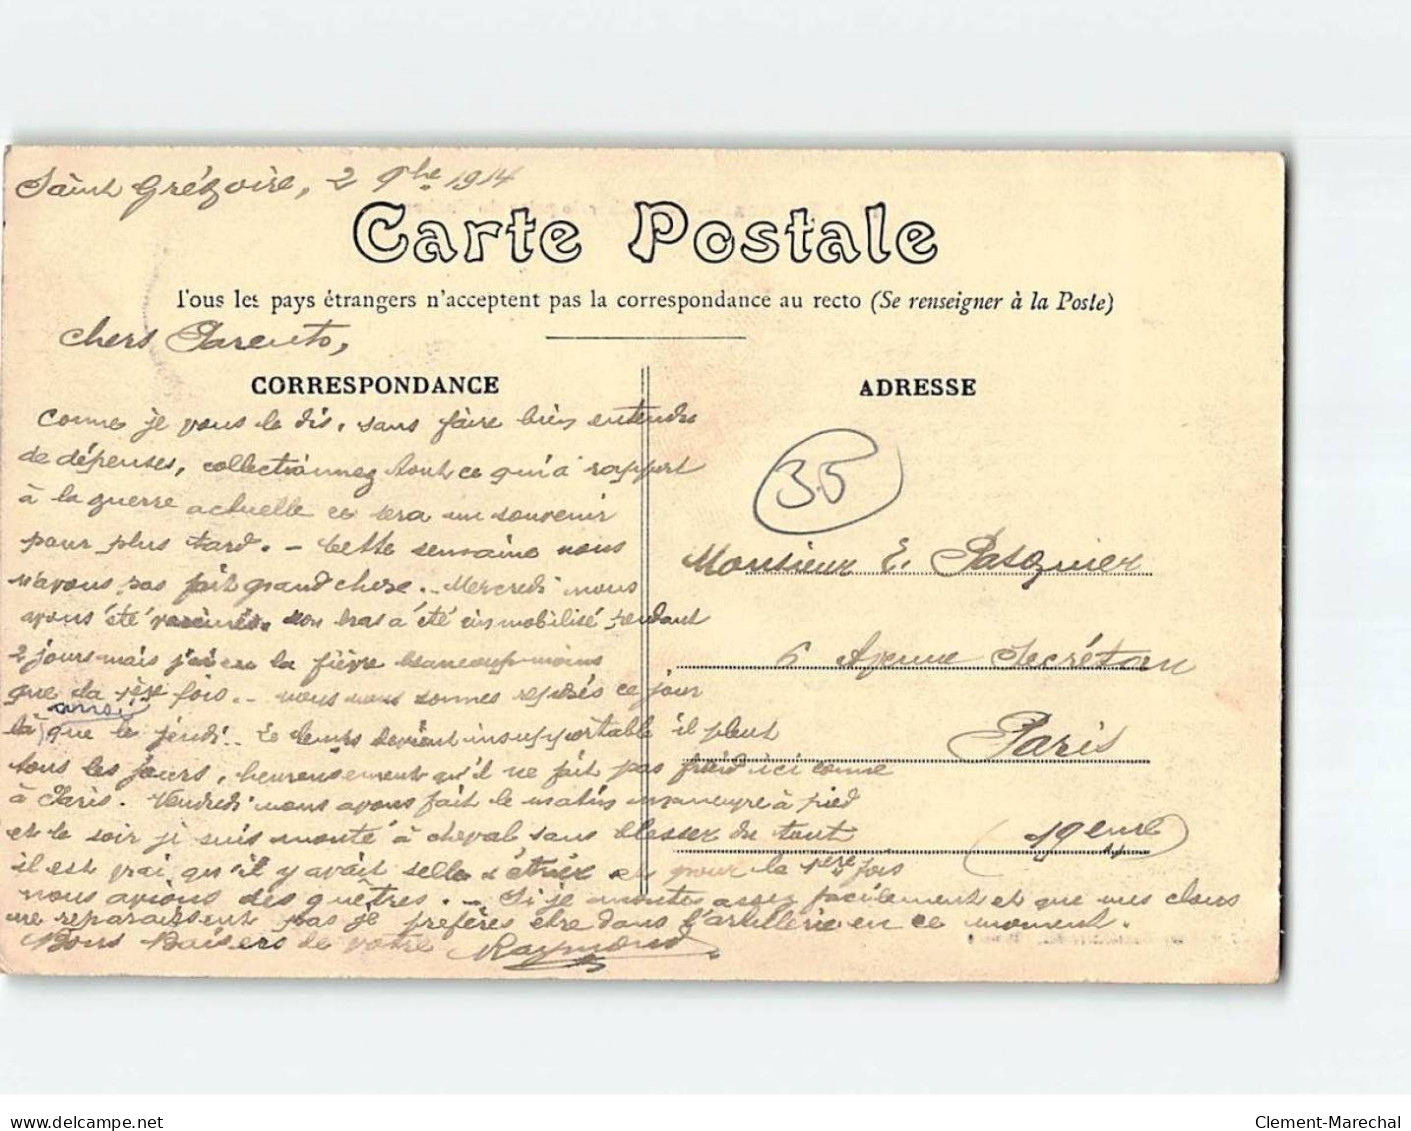 Saint Grégoire, 2 9bre 1914
Carte Postale
Tous les pays étrangers n'acceptent pas la correspondance au recto (Se renseigner à la Poste)
chers Parents,
CORRESPONDANCE
ADRESSE
Comme je vous le dis, sans faire bien entendu
de dépenses, collectionnez tout ce qui a rapport
à la guerre actuelle ce sera un souvenir
pour plus tard. - Cette semaine nous
n'avons pas fait grand chose. - Mercredi nous
avons été vaccinés. Mon bras a été immobilisé pendant
2 jours mais j'ai eu la fièvre beaucoup moins
que la 1ère fois. - nous nous sommes reposés ce jour
ainsi
là que le jeudi. - Le temps devient insupportable il pleut
tous les jours, heureusement qu'il ne fait pas froid ici comme
à Paris. Vendredi nous avons fait le matin manœuvre à pied
et le soir je suis monté à cheval, sans blesser du tout
il est vrai qu'il y avait selle & étrier et pour la 1ère fois
nous avions des guêtres. - Si je monte assez facilement et que mes clous
ne reparaissent pas je préfères être dans l'artillerie en ce moment.
Bons Baisers de votre Raymond
35
Monsieur E. Pasquier
6 Avenue Secrétan
Paris
(19eme)
delcampe.net
Clement-Marechal